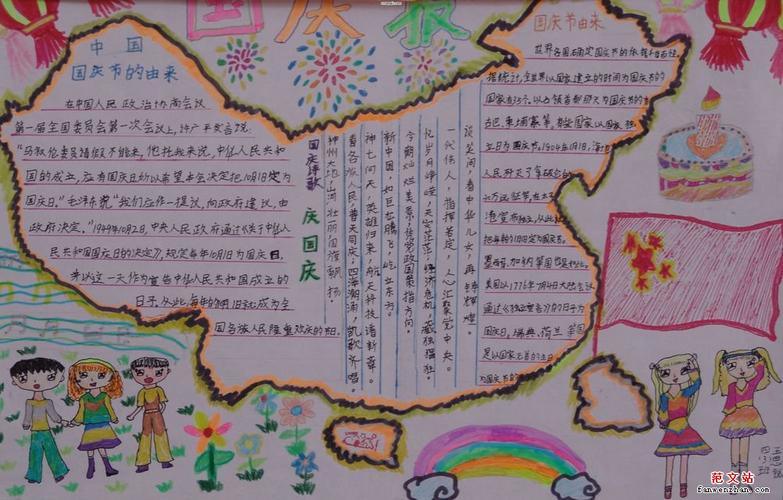 国庆报
中国
国庆节的由来
在中国人民政治协商会议
第一届全国委员会第一次会议上，许广平发言说：
“马叙伦委员请假不能来，他托我来说，中华人民共和
国的成立，应有国庆日所以希望本会决定把10月1日定为
国庆日。”毛泽东说“我们应作一提议，向政府建议，由
政府决定。”1949年10月2日，中央人民政府通过《关于中华人
民共和国国庆日的决定》，规定每年10月1日为国庆日，
并以这一天作为宣告中华人民共和国成立的
日子从此，每年的10月1日就成为全
国各族人民隆重欢庆的节日。
国庆诗歌
庆国庆
神州地山河壮丽闻旗飘扬。
看各族人民，普天同庆，四海潮涌，凯歌齐唱。
神七问天，英雄归来，航天科技谱新章。
新中国，如巨龙腾飞，屹立东方。
今朝灿烂美景，凭党政国策指方向。
忆岁月峥嵘，天空茫茫，经济危机，藏独猖狂。
一代伟人，指挥若定，人心汇聚党中央。
谈笑间，看中华儿女，再铸辉煌。
国庆节由来
世界各国确定国庆节的依据千奇百怪。
据统计，全世界以国家建立的时间为国庆节的
国家有35个。以占领首都那天为国庆节的有
古巴、柬埔寨等。有些国家以国家独
立日为国庆节。1804年1月1日，海地
人民歼灭了拿破仑的
6万远征军，在太子
港宣布独立，从此
把每年的1月1日定为国庆节。
墨西哥、加纳等国也是如此。
美国以1776年7月4日大陆会议
通过《独立宣言》的日子为
国庆日。瑞典、荷兰等国
是以国家元首的生日
为国庆节的
四(3)班
范文站
fanwenzhan.com